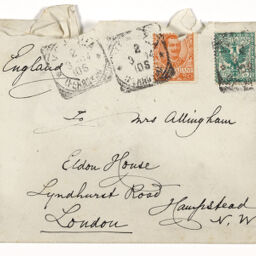 England
To Mrs Allingham
Eldon House
Lyndhurst Road
Hampstead
London
N.W.